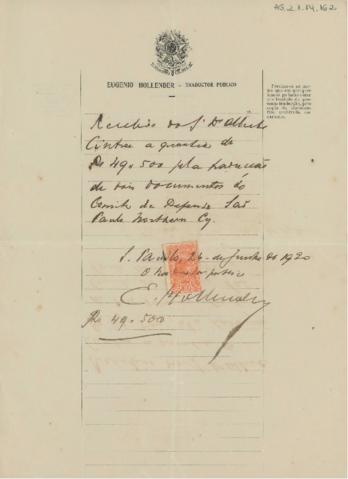 AS.21.04.162
EUGENIO HOLLENDER - TRADUCTOR PUBLICO
Recebi do Sr. Dr. Alberto
Cintra a quantia de
Rs 49.500 pela traducção
de dois documentos do
Comité da Defensa São
Paulo Northern Cy.
S. Paulo, 26 de Junho de 1920
O traductor publico
E. Hollender
Rs 49.500